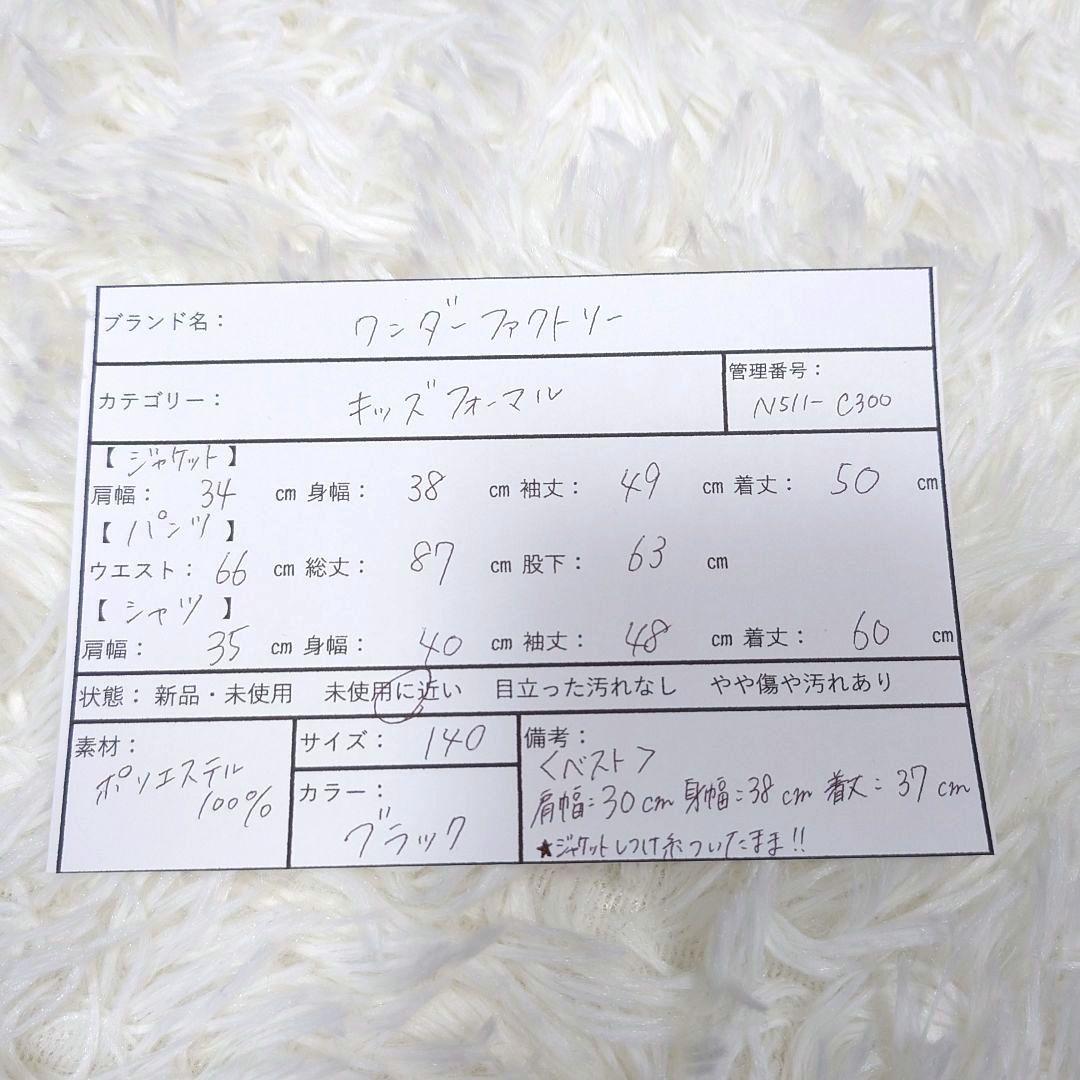 ブランド名: ワンダーファクトリー
カテゴリー: キッズフォーマル
管理番号:
N511-C300
【ジャケット】
肩幅: 34 cm 身幅: 38 cm 袖丈: 49 cm 着丈: 50 cm
【パンツ】
ウエスト: 66 cm 総丈: 87 cm 股下: 63 cm
【シャツ】
肩幅: 35 cm 身幅: 40 cm 袖丈: 48 cm 着丈: 60 cm
状態: 新品・未使用 未使用に近い 目立った汚れなし やや傷や汚れあり
素材:
ポリエステル
100%
サイズ: 140
カラー:
ブラック
備考:
<ベスト>
肩幅:30cm 身幅:38cm 着丈:37cm
★ジャケットしつけ糸ついたまま!!